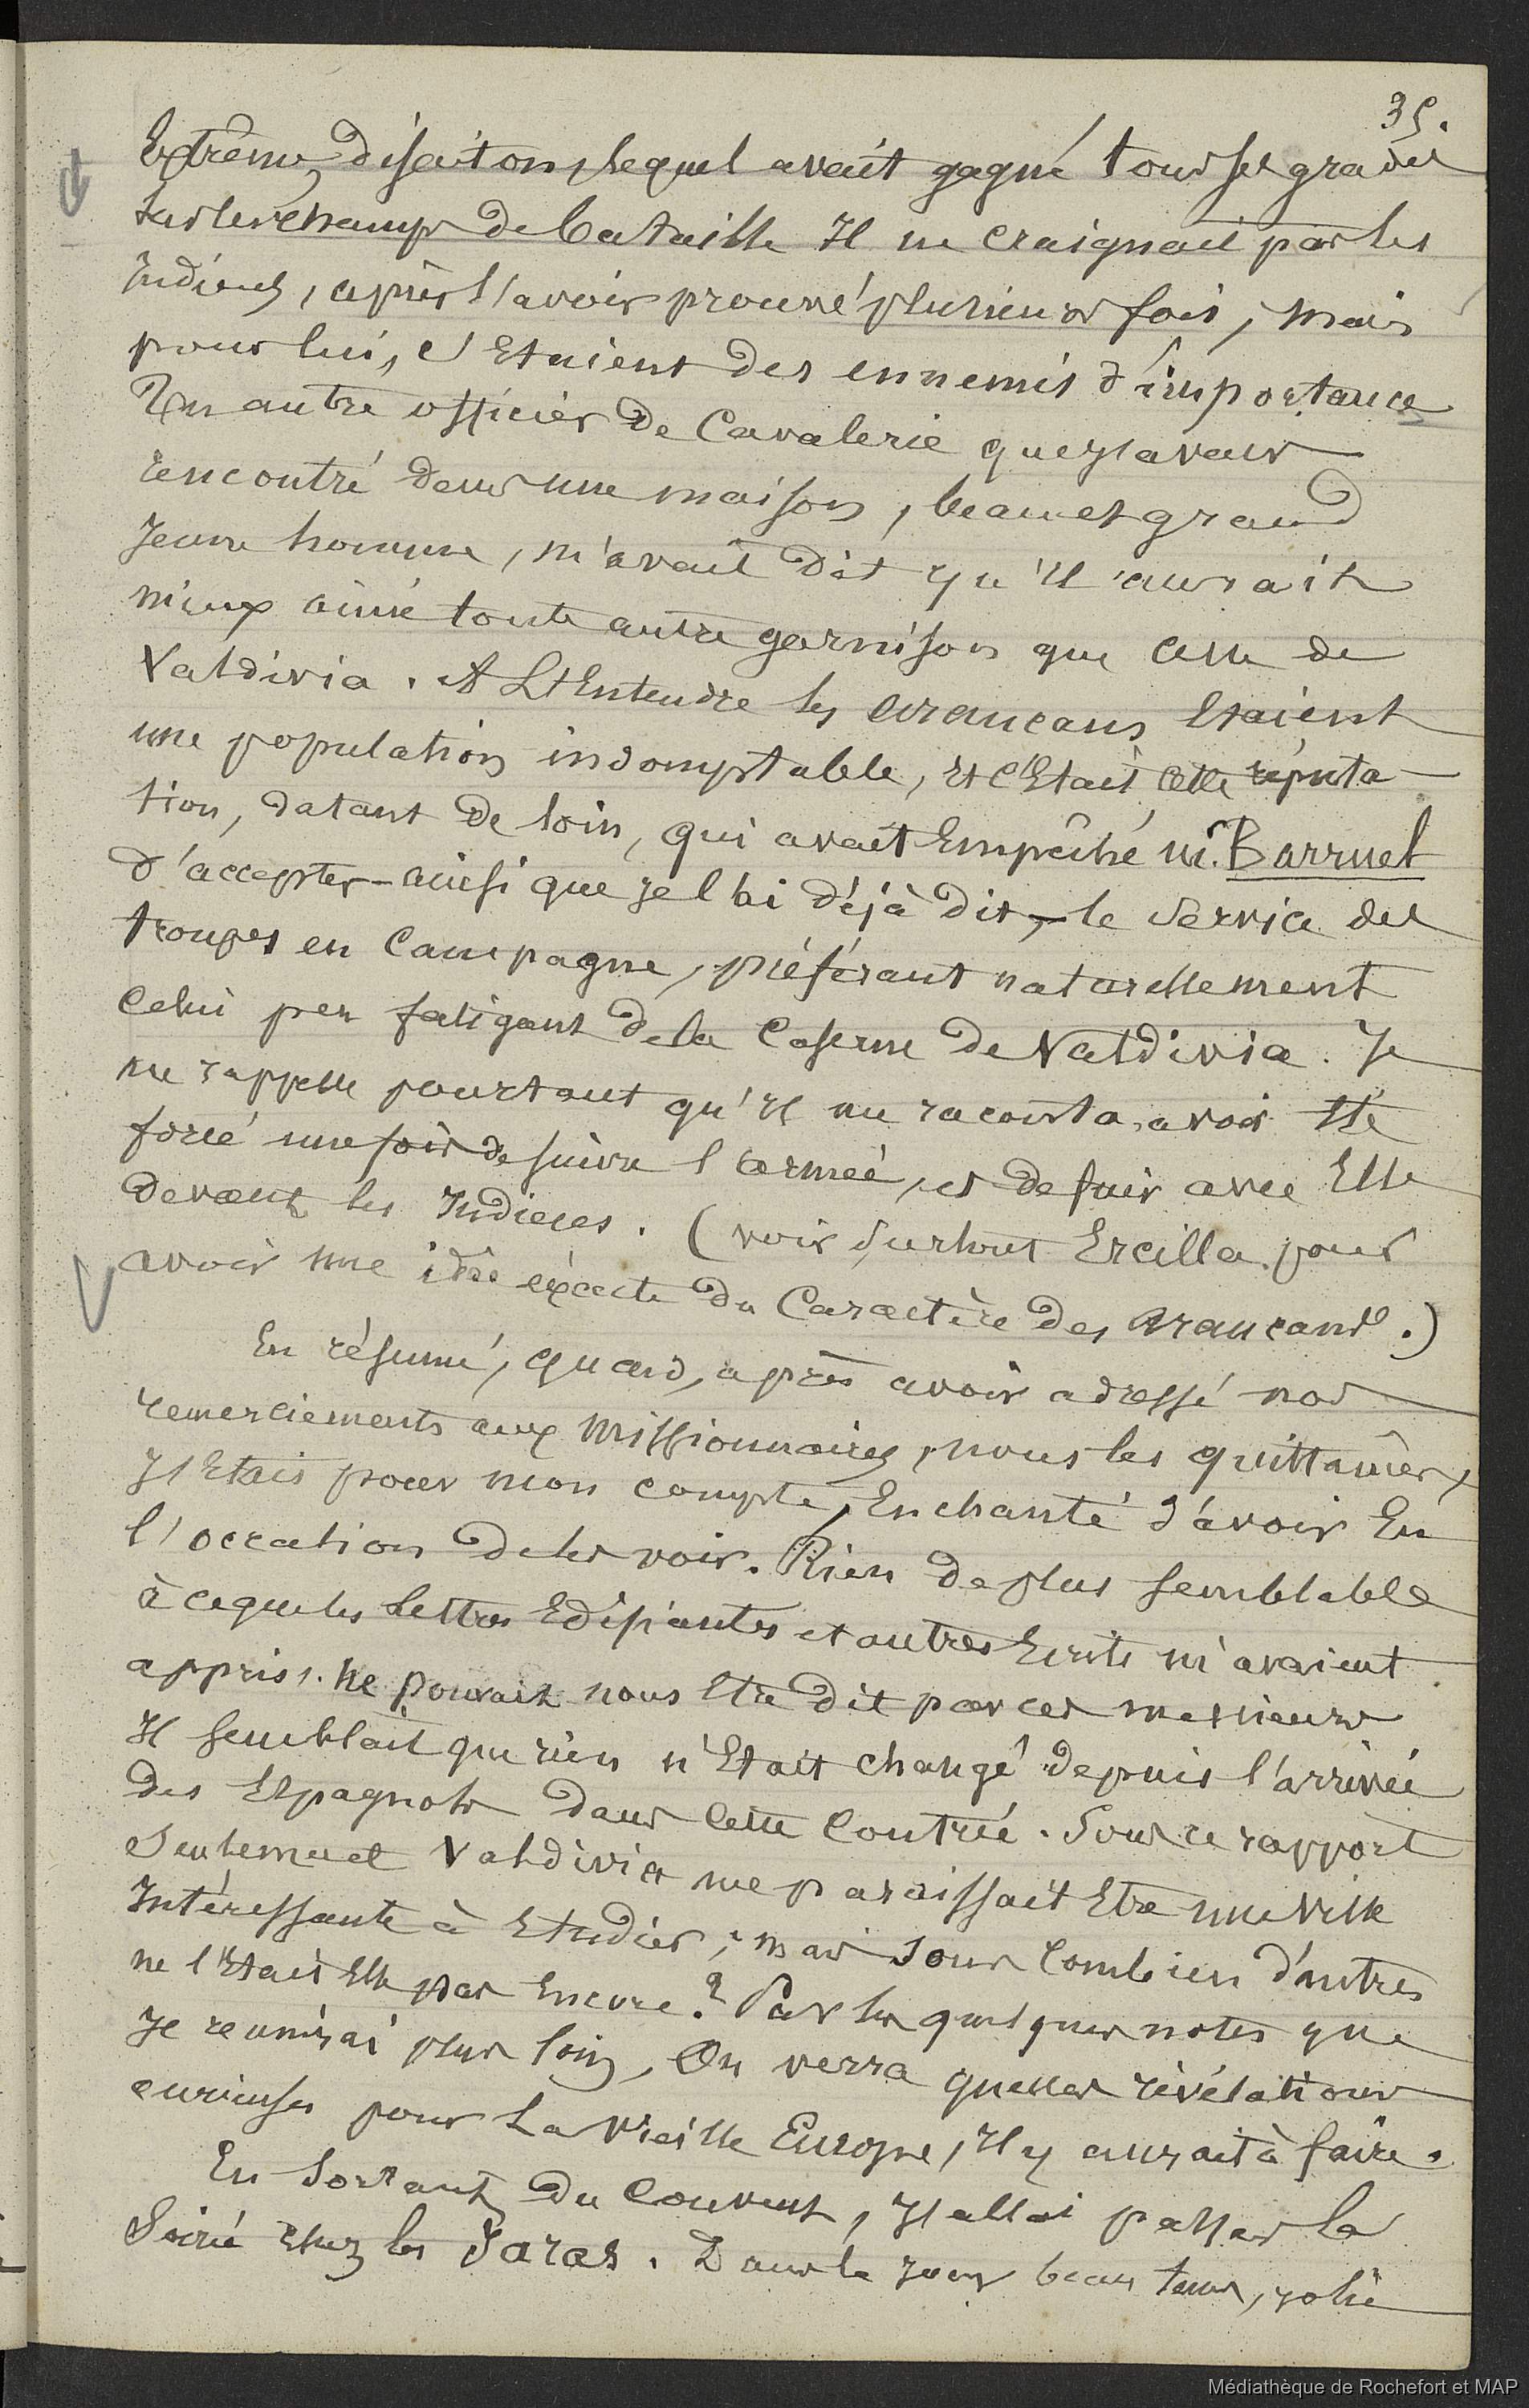 35.
Extrême, disait on, lequel avait gagné tous ses grades
sur les champs de bataille Il ne craignait pas les
Indiens, après l'avoir prouvé plusieurs fois, mais
pour lui, c'Etaient des ennemis d'importance
Un autre officier de Cavalerie que j'avais
rencontré dans une maison, beau et grand
Jeune homme, m'avait dit qu'il aurait
mieux aimé toute autre garnison que celle de
Valdivia. A L'Entendre les araucans Etaient
une population indomptable, et c'Etait cette réputa-
tion, datant de loin, qui avait Empêché M. Barruel
d'accepter - ainsi que je l'ai déjà dit, - le service des
troupes en Campagne, préférant naturellement
Celui peu fatigant de la Caserne de Valdivia. Je
me rappelle pourtant qu'il me raconta, avoir Eté
forcé une fois de suivre l'armée, et de fuir avec Elle
devant les Indiens. (voir surtout Ercilla pour
avoir une idée éxacte du Caractère des Araucans.)
En résumé, quand, après avoir adressé nos
remerciements aux Missionnaires, nous les quittâmes,
J'Etais pour mon compte, Enchanté d'avoir Eu
l'occation de les voir. Rien de plus semblable
à ce que les Lettres Edifiantes et autres Ecrits m'avaient
appris, ne pouvait nous Etre dit par ces messieurs
Il semblait que rien n'Etait changé depuis l'arrivée
des Espagnols dans cette Contrée. Sous ce rapport
seulement Valdivia me paraissait Etre une Ville
Intéressante à Etudier; mais sous Combien d'autres
ne l'Etait Elle pas Encore? Par les quelques notes que
Je réunirai plus loin, On verra quelles révélations
curieuses pour La Vieille Europe, Il y aurait à faire.
En Sortant du Couvent, J'allai passer la
Soirée chez les Jaras. Dans le jour beau tems, jolie
Médiathèque de Rochefort et MAP